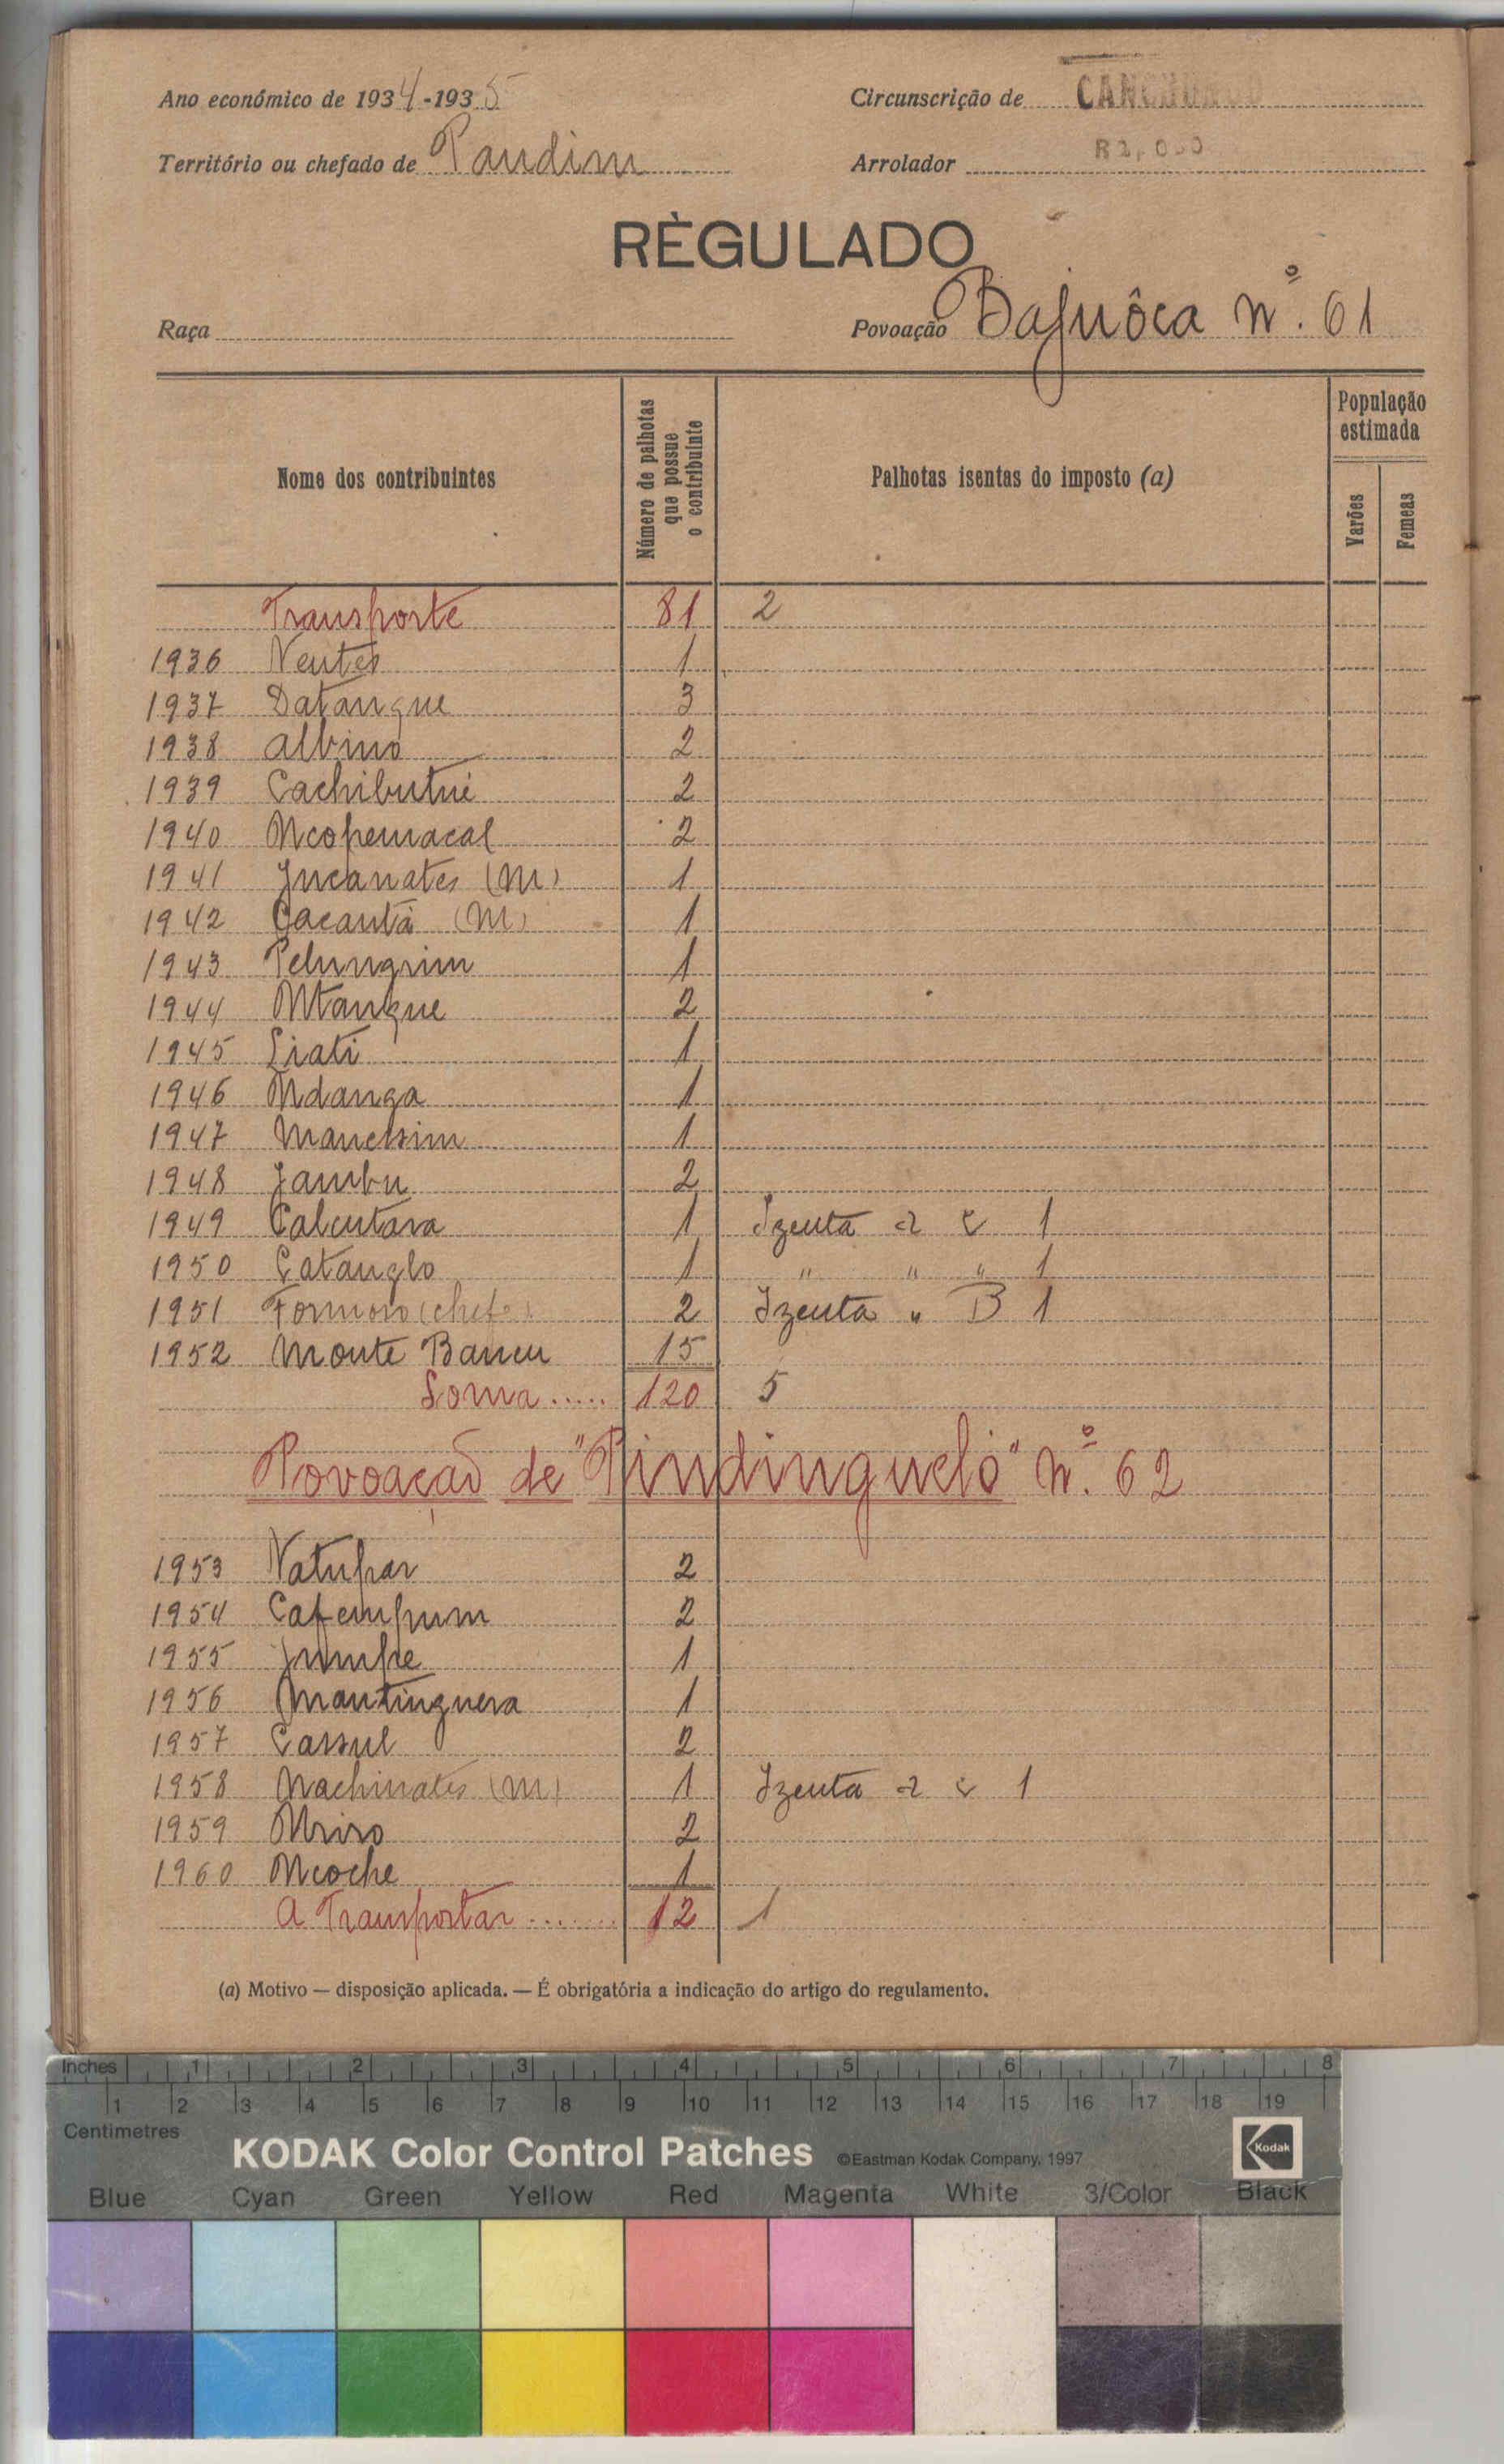 Ano económico de 1934-1935
Circunscrição de CANCHUNGO
Território ou chefado de Pandim
Arrolador
RÈGULADO
Raça
Povoação Bajuôca Nº. 61
Nome dos contribuintes
Número de palhotas que possue o contribuinte
Palhotas isentas do imposto (a)
População estimada
Varões
Femeas
Transporte 81 2
1936 Neutes 1
1937 Datangue 3
1938 Albino 2
1939 Cachibutué 2
1940 Ncopemacal 2
1941 Jncanates (M) 1
1942 Cacantá (M) 1
1943 Pelungrim 1
1944 Ntangue 2
1945 Liati 1
1946 Ndanga 1
1947 Manessim 1
1948 Jambu 2
1949 Calcutára 1 Izenta a c 1
1950 Catanglo 1 " " " 1
1951 Formoso (chefe) 2 Izenta " B 1
1952 Monte Baneu 15
Soma..... 120 5
Povoação de "Pindingueló" Nº. 62
1953 Natupar 2
1954 Cafempum 2
1955 Jumpe 1
1956 Mantinguera 1
1957 Cassul 2
1958 Nachinates (M) 1 Izenta a c 1
1959 Nriso 2
1960 Ncoche 1
A Transportar....... 12 1
(a) Motivo — disposição aplicada. — É obrigatória a indicação do artigo do regulamento.
Inches 1 2 3 4 5 6 7 8
1 2 3 4 5 6 7 8 9 10 11 12 13 14 15 16 17 18 19
Centimetres
KODAK Color Control Patches ©Eastman Kodak Company, 1997 Kodak
Blue Cyan Green Yellow Red Magenta White 3/Color Black